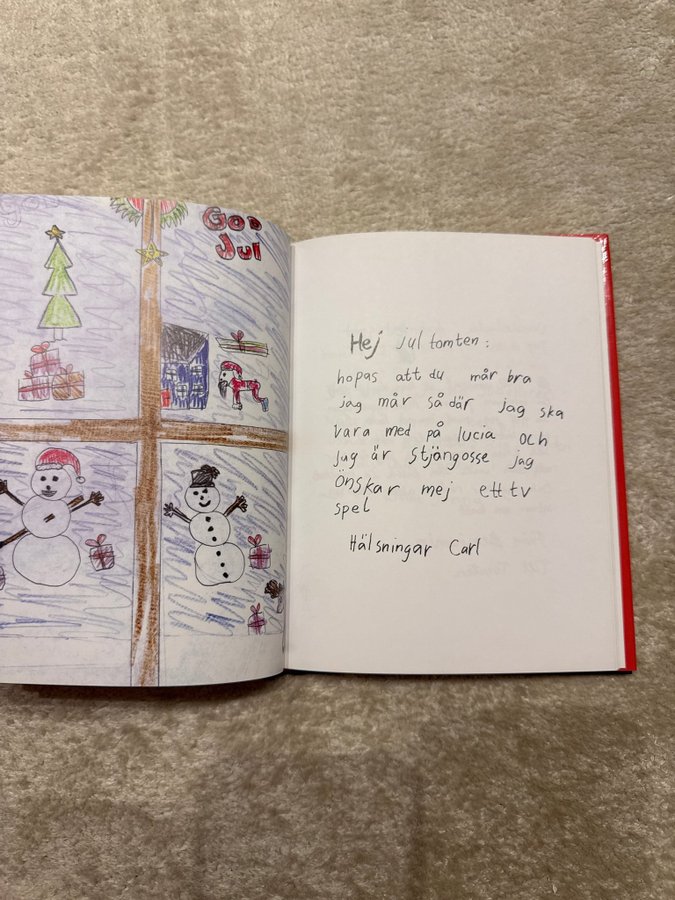 God
Jul
Hej jul tomten:
hopas att du mår bra
jag mår så där jag ska
vara med på lucia och
jag är Stjängosse jag
önskar mej ett tv
spel
Hälsningar Carl